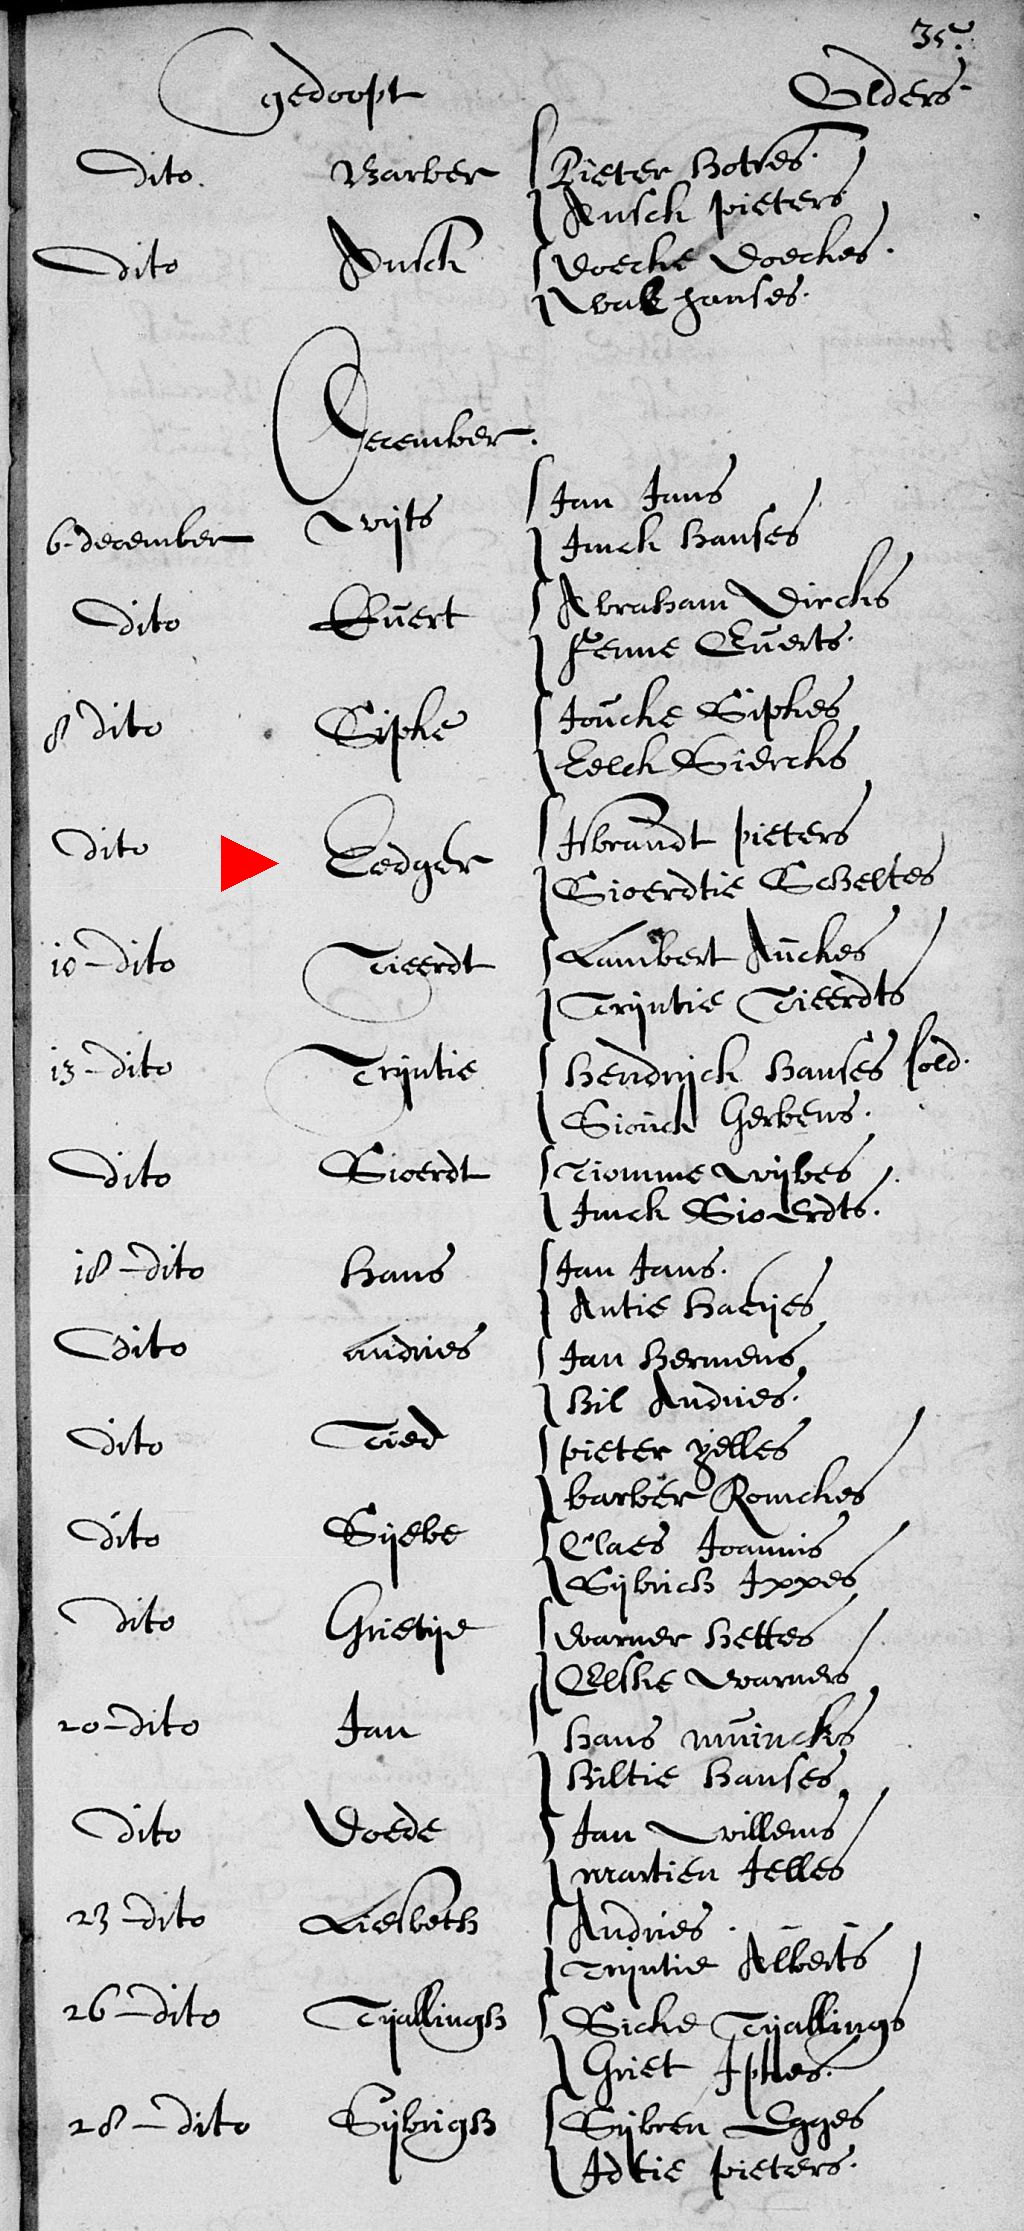 35.
gedoopt Elders
dito. Barber Pieter Hottes.
Ansck pieters
dito Ansck Doecke Doeckes.
hanses.
December.
6-december Wijts Jan Jans
Imck Hanses
dito Evert Abraham Dircks
Fenne Everts.
8 dito Sipke Joucke Sipkes
Eelck Siercks
dito Eedger Isbrandt pieters
Sioerdtie Scheltes
10-dito Tieerdt Lambert Auckes
Trijntie Tieerdts
13-dito Trijntie Hendrijck Hanses sold.
Siouck Gerbens.
dito Sioerdt Tiomme wijbes
Imck Sioerdts.
18-dito Hans Jan Jans.
Antie
dito Andries Jan Hermens
Bil Andries.
dito Tied pieter yelles
barber Romckes
dito Sijebe Claes Joannis
Sijbrich Ippes
dito Grietije warner Hettes
Elske warners
20-dito Jan Hans muincks
Biltie Hanses
dito Doede Jan willems
martien Jelles
23-dito Liesbeth Andries.
Trijntie Alberts
26-dito Tijallingh Sicke Tijallings
Griet Ipkes.
28-dito Sijbrigh Sijbren Egges
pieters.